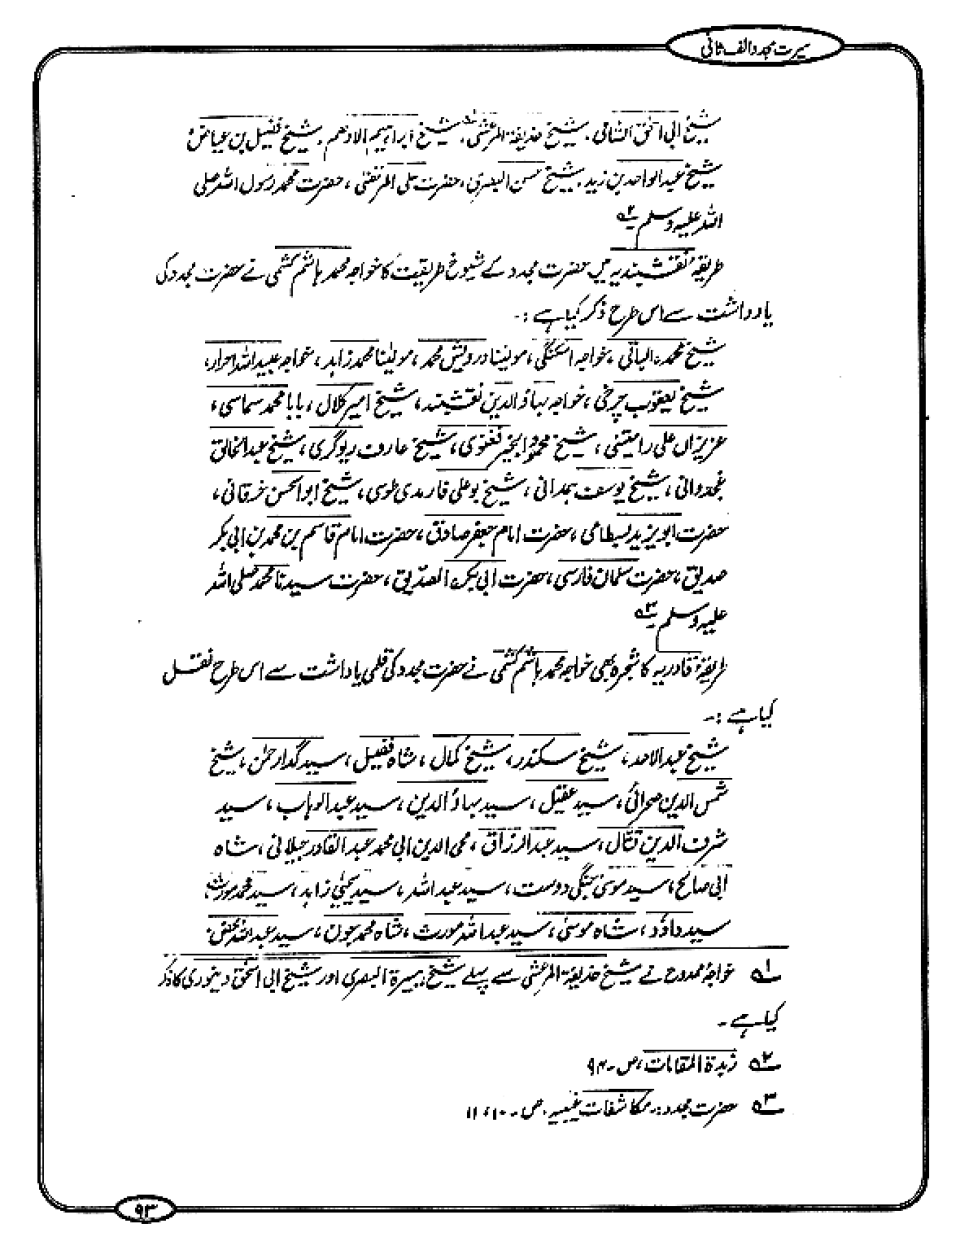 سیرت مجدد الف ثانی
شیخ ابی اسحٰق الشامی، شیخ حذیفۃ المرعشی،؎۱ شیخ ابراہیم الادھم، شیخ فضیل بن عیاض،
شیخ عبدالواحد بن زید، شیخ حسن البصری، حضرت علی المرتضٰی، حضرت محمد رسول اللہ صلی
اللہ علیہ وسلم۔؎۲
طریقہ نقشبندیہ میں حضرت مجدد کے شیوخ طریقیت کا خواجہ محمد ہاشم کشمی نے حضرت مجدد کی
یادداشت سے اس طرح ذکر کیا ہے :۔
شیخ محمد الباقی، خواجہ امکنگی، مولینا درویش محمد، مولینا محمد زاہد، خواجہ عبیداللہ احرار،
شیخ یعقوب چرخی، خواجہ بہاؤالدین نقشبند، شیخ امیر کلال، بابا محمد سماسی،
عزیزاں علی رامیتنی، شیخ محمود الخیر فغنوی، شیخ عارف ریوگری، شیخ عبدالخالق
غجدوانی، شیخ یوسف ہمدانی، شیخ بو علی فارمدی طوسی، شیخ ابوالحسن خرقانی،
حضرت ابو یزید بسطامی، حضرت امام جعفر صادق، حضرت امام قاسم بن محمد بن ابی بکر
صدیق، حضرت سلمان فارسی، حضرت ابی بکر الصدیق، حضرت سیدنا محمد صلی اللہ
علیہ وسلم۔؎۳
طریقہ قادریہ کا شجرہ بھی خواجہ محمد ہاشم کشمی نے حضرت مجدد کی قلمی یاداشت سے اس طرح نقل
کیا ہے :۔
شیخ عبدالاحد، شیخ سکندر، شیخ کمال، شاہ فضیل، سید گدا رحمٰن، شیخ
شمس الدین صحرائی، سید عقیل، سید بہاؤالدین، سید عبدالوہاب، سید
شرف الدین قتال، سید عبدالرزاق، محی الدین ابی محمد عبدالقادر جیلانی، شاہ
ابی صالح، سید موسیٰ جنگی دوست، سید عبداللہ، سید یحییٰ زاہد، سید محمد مورث،
سید داؤد، شاہ موسیٰ، سید عبداللہ مورث، شاہ محمد جون، سید عبداللہ محض،
؎۱ خواجہ ممدوح نے شیخ حذیفۃ المرعشی سے پہلے شیخ ہبیرۃ البصری اور شیخ ابی اسحٰق دینوری کا ذکر
کیا ہے۔
؎۲ زبدۃ المقامات، ص۔۹۴
؎۳ حضرت مجدد: مکاشفات غیبیہ، ص۔۱۰، ۱۱
۹۳